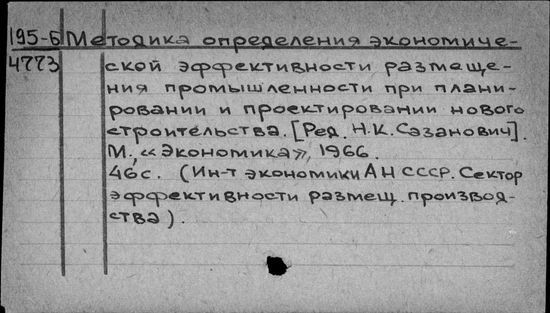 195-6 Методика определения экономиче-
4773 ской эффективности размеще-
ния промышленности при плани-
ровании и проектировании нового
строительства. [Ред. Н.К. Сазанович].
М., «Экономика», 1966.
46с. (Ин-т экономики АН СССР. Сектор
эффективности размещ. производ-
ства).